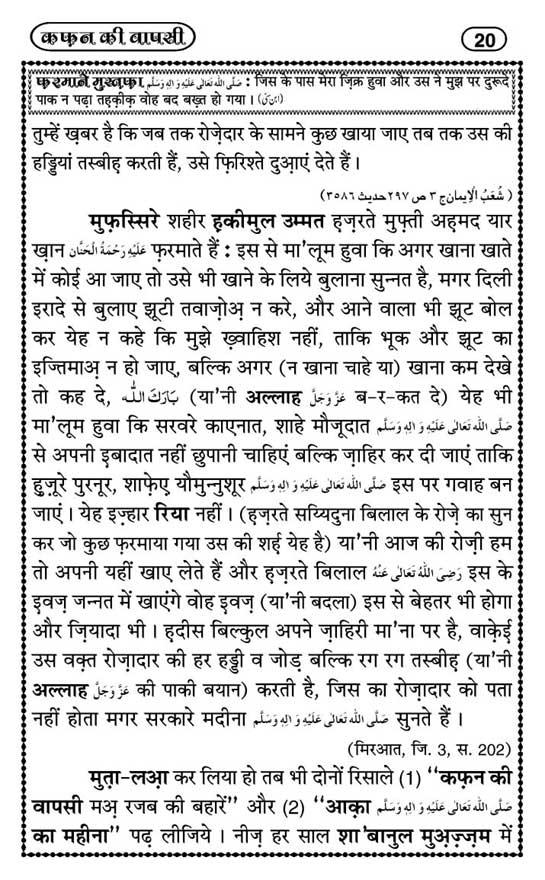 कफ़न की वापसी
20
फ़रमाने मुस्त़फ़ा صَلَّى اللّٰه تَعَالٰى عَلَيْهِ وَ اٰلِهٖ وَسَلَّم : जिस के पास मेरा ज़िक्र हुवा और उस ने मुझ पर दुरूदे
पाक न पढ़ा तह़क़ीक़ वोह बद बख़्त हो गया । (ابن سنی)
तुम्हें ख़बर है कि जब तक रोज़ेदार के सामने कुछ खाया जाए तब तक उस की
हड्डियां तस्बीह़ करती हैं, उसे फ़िरिश्ते दुआ़एं देते हैं ।
( شُعَبُ الْاِیمان ج ۳ ص ۲۹۷ حدیث ۳۵۸۶ )
मुफ़स्सिरे शहीर ह़कीमुल उम्मत ह़ज़रते मुफ़्ती अह़मद यार
ख़ान عَلَيْهِ رَحْمَةُ الْحَنَّان फ़रमाते हैं : इस से मा'लूम हुवा कि अगर खाना खाते
में कोई आ जाए तो उसे भी खाने के लिये बुलाना सुन्नत है, मगर दिली
इरादे से बुलाए झूटी तवाज़ोअ़ न करे, और आने वाला भी झूट बोल
कर येह न कहे कि मुझे ख़्वाहिश नहीं, ताकि भूक और झूट का
इज्तिमाअ़ न हो जाए, बल्कि अगर (न खाना चाहे या) खाना कम देखे
तो कह दे, بَارَكَ اللّٰه (या'नी अल्लाह عَزَّوَجَلَّ ब-र-कत दे) येह भी
मा'लूम हुवा कि सरवरे काएनात, शाहे मौजूदात صَلَّى اللّٰه تَعَالٰى عَلَيْهِ وَ اٰلِهٖ وَسَلَّم
से अपनी इबादात नहीं छुपानी चाहिएं बल्कि ज़ाहिर कर दी जाएं ताकि
हुज़ूरे पुरनूर, शाफ़ेए यौमुन्नुशूर صَلَّى اللّٰه تَعَالٰى عَلَيْهِ وَ اٰلِهٖ وَسَلَّم इस पर गवाह बन
जाएं । येह इज़्हार रिया नहीं । (ह़ज़रते सय्यिदुना बिलाल के रोज़े का सुन
कर जो कुछ फ़रमाया गया उस की शर्ह़ येह है) या'नी आज की रोज़ी हम
तो अपनी यहीं खाए लेते हैं और ह़ज़रते बिलाल رَضِیَ اللّٰهُ تَعَالٰی عَنْهُ इस के
इवज़ जन्नत में खाएंगे वोह इवज़ (या'नी बदला) इस से बेहतर भी होगा
और ज़ियादा भी । ह़दीस बिल्कुल अपने ज़ाहिरी मा'ना पर है, वाक़ेई
उस वक़्त रोज़ादार की हर हड्डी व जोड़ बल्कि रग रग तस्बीह़ (या'नी
अल्लाह عَزَّوَجَلَّ की पाकी बयान) करती है, जिस का रोज़ादार को पता
नहीं होता मगर सरकारे मदीना صَلَّى اللّٰه تَعَالٰى عَلَيْهِ وَ اٰلِهٖ وَسَلَّم सुनते हैं ।
(मिरआत, जि. 3, स. 202)
मुत़ा-लआ़ कर लिया हो तब भी दोनों रिसाले (1) “कफ़न की
वापसी मअ़ रजब की बहारें” और (2) “आक़ा صَلَّى اللّٰه تَعَالٰى عَلَيْهِ وَ اٰلِهٖ وَسَلَّم
का महीना” पढ़ लीजिये । नीज़ हर साल शा'बानुल मुअ़ज़्ज़म में